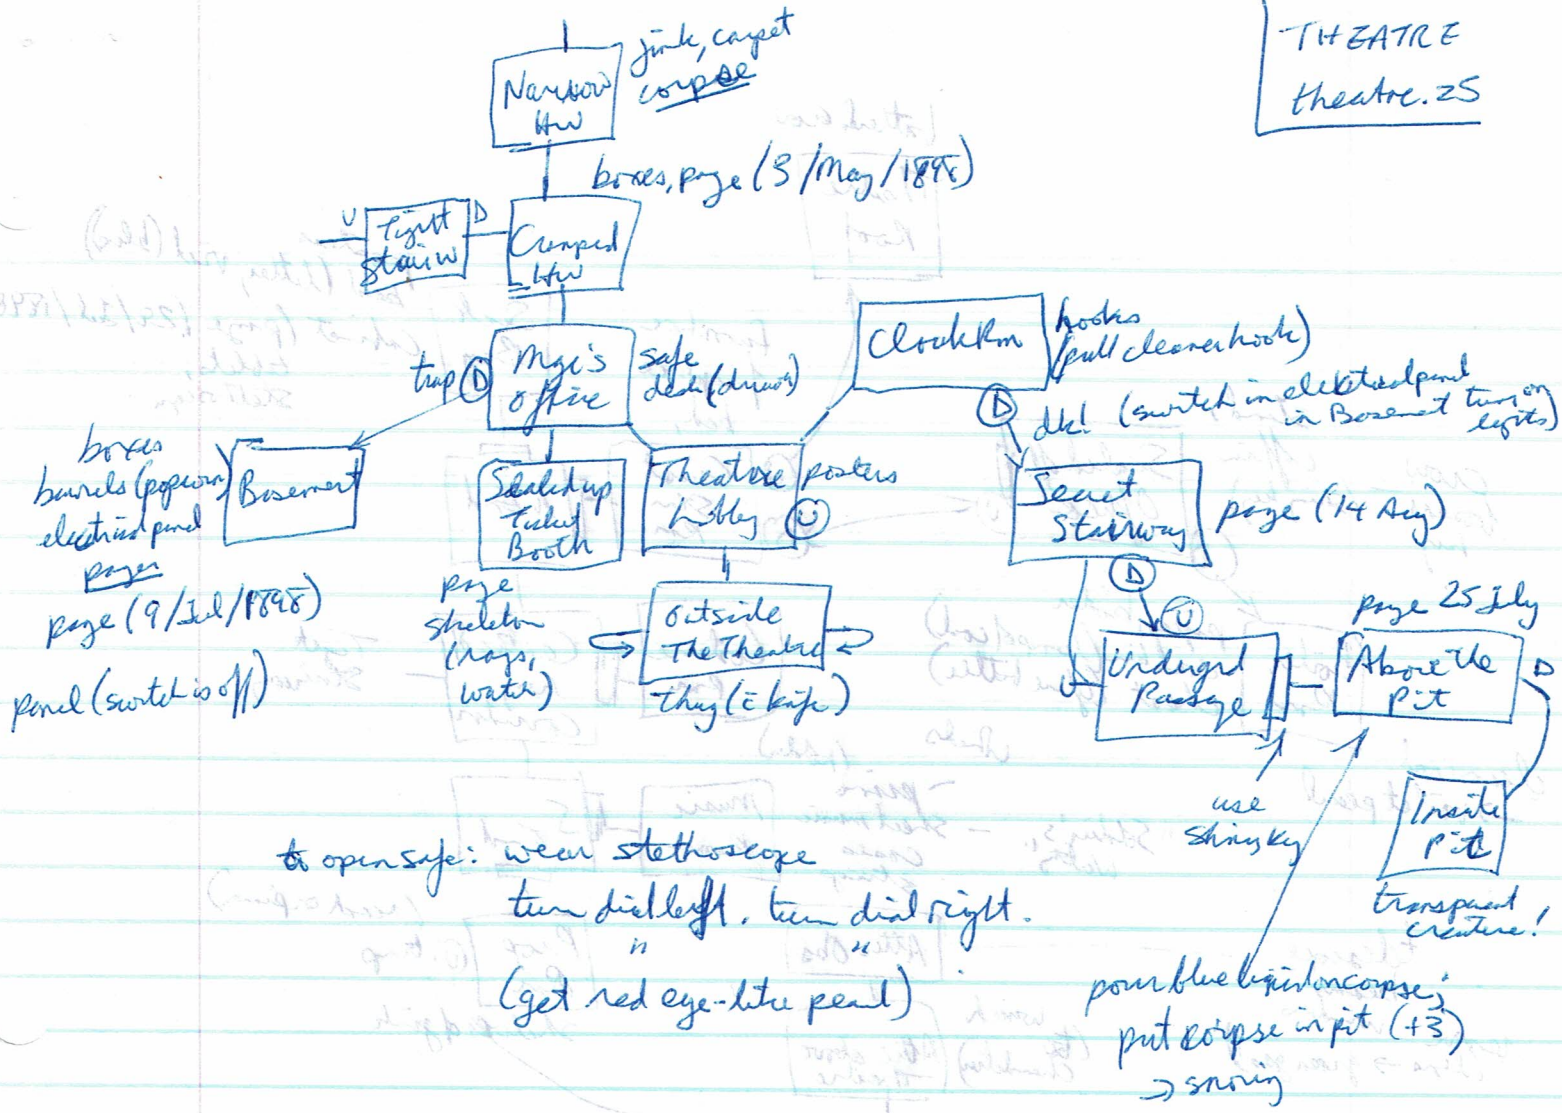 THEATRE
theatre.z5
junk, carpet
corpse
Narrow
HW
boxes, page (3/May/1898)
U
Tight
Stairw
D
Cramped
HW
trap
D
Mgr's
office
safe
desk (drawer)
CloakRm
hooks
(pull cleaner hook)
D
dk! (switch in electrical panel
in Basement turn on
lights)
boxes
barrels (popcorn)
electrical panel
pages
page (9/Jul/1898)
panel (switch is off)
Basement
Sealed up
Ticket
Booth
page
skeleton
(rags,
watch)
Theatre
Lobby
U
posters
Outside
The Theatre
thug (c̄ knife)
Secret
Stairway
page (14 Aug)
D
U
U
Undergrd
Passage
page 25 July
Above the
Pit
D
use
shiny key
Inside
pit
transparent
creature!
to open safe: wear stethoscope
turn dial left. turn dial right.
" "
(get red eye-like pearl)
pour blue liquid on corpse;
put corpse in pit (+3)